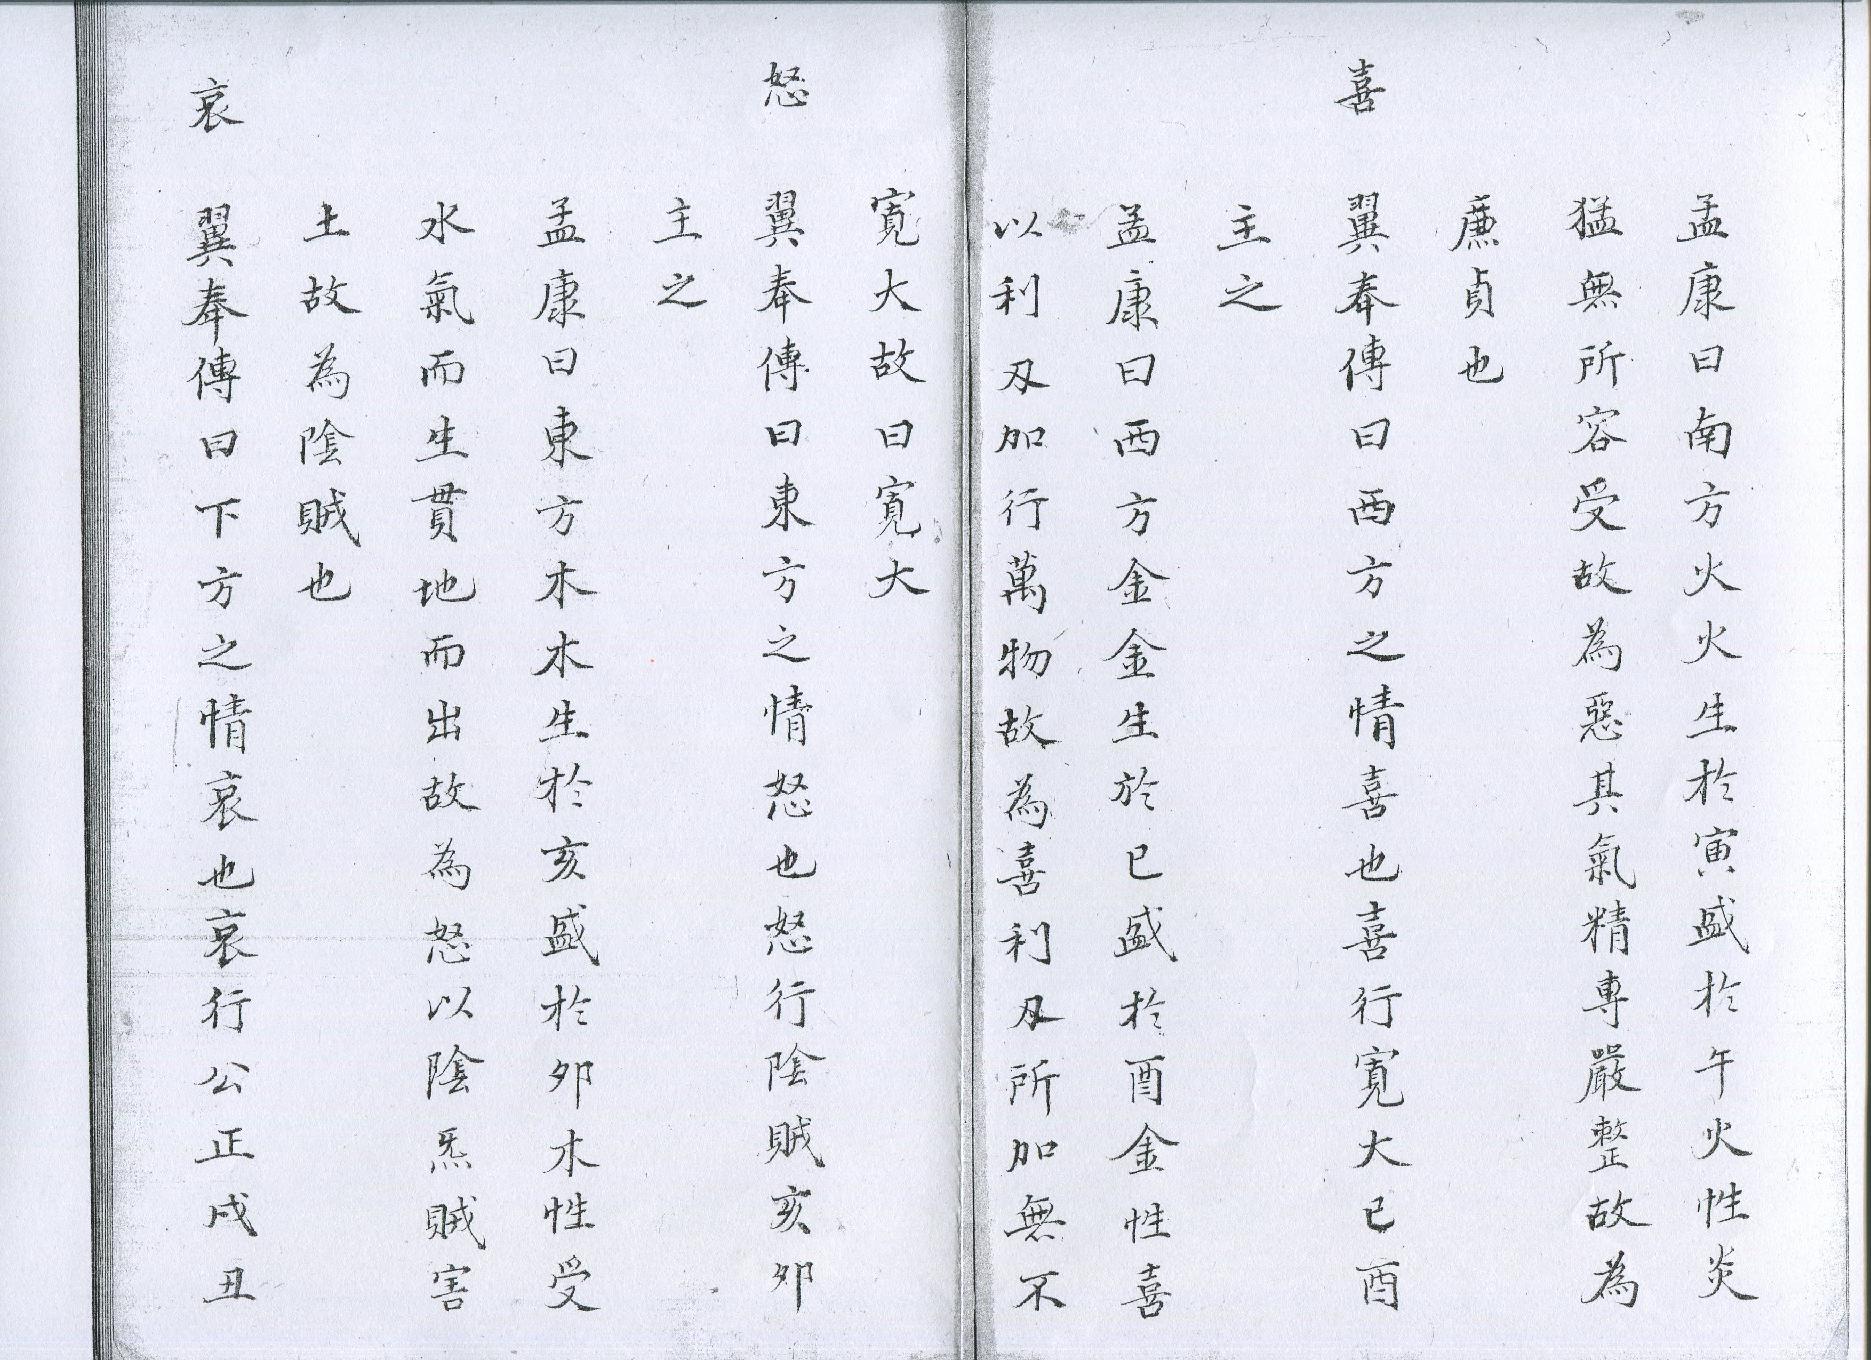 孟康曰南方火火生於寅盛於午火性炎
猛無所容受故為惡其氣精專嚴整故為
廉貞也
喜　翼奉傳曰西方之情喜也喜行寬大巳酉
主之
孟康曰西方金金生於巳盛於酉金性喜
以利刃加行萬物故為喜利刃所加無不
寬大故曰寬大
怒　翼奉傳曰東方之情怒也怒行陰賊亥卯
主之
孟康曰東方木木生於亥盛於卯木性受
水氣而生貫地而出故為怒以陰炁賊害
土故為陰賊也
哀　翼奉傳曰下方之情哀也哀行公正戌丑